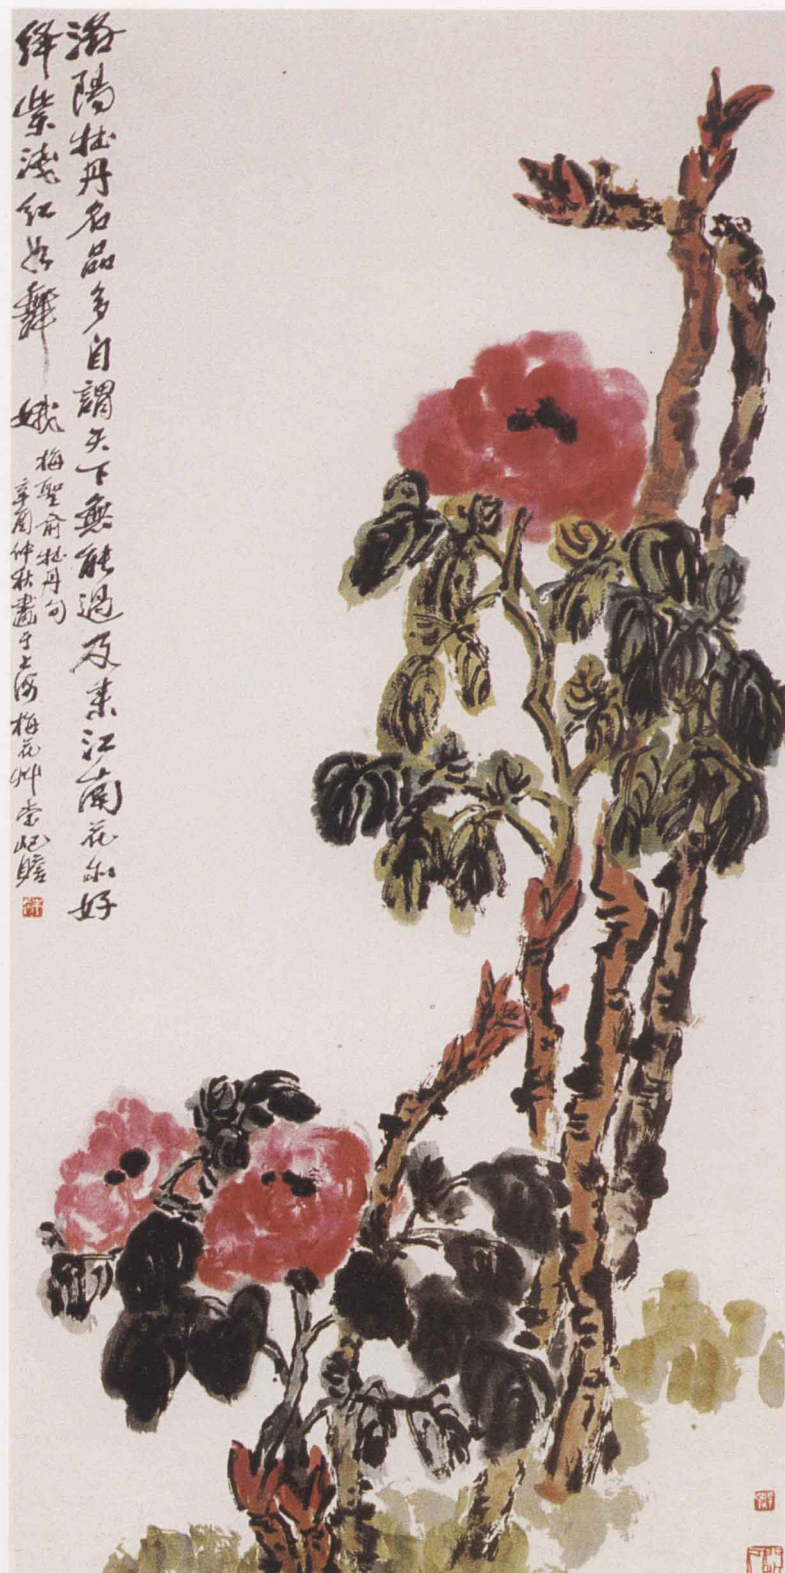 洛陽牡丹名品多自謂天下無能過及來江南花亦好
絳紫淺紅如舞娥
梅聖俞牡丹句
辛酉仲秋畫于上海梅花草堂屺瞻